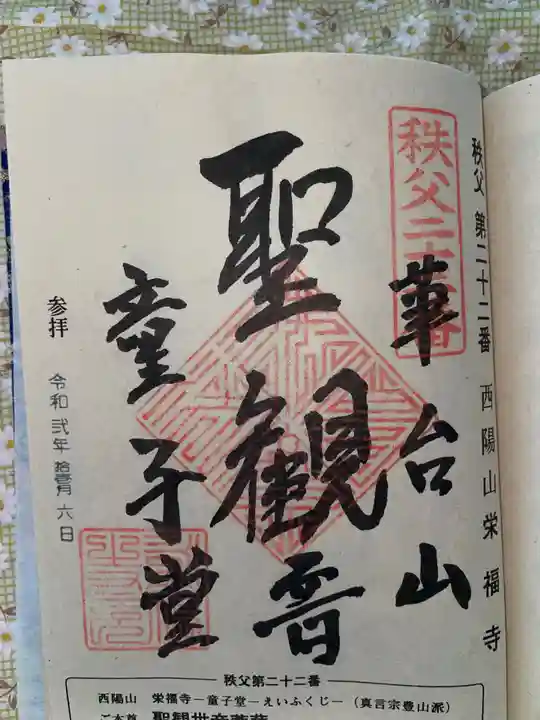 秩父 第二十二番 西陽山栄福寺
秩父二十二番
華台山
聖観音
童子堂
参拝 令和弐年 拾壹月 六日
秩父第二十二番
西陽山 栄福寺―童子堂―えいふくじ―（真言宗豊山派）
ご本尊 聖観世音菩薩